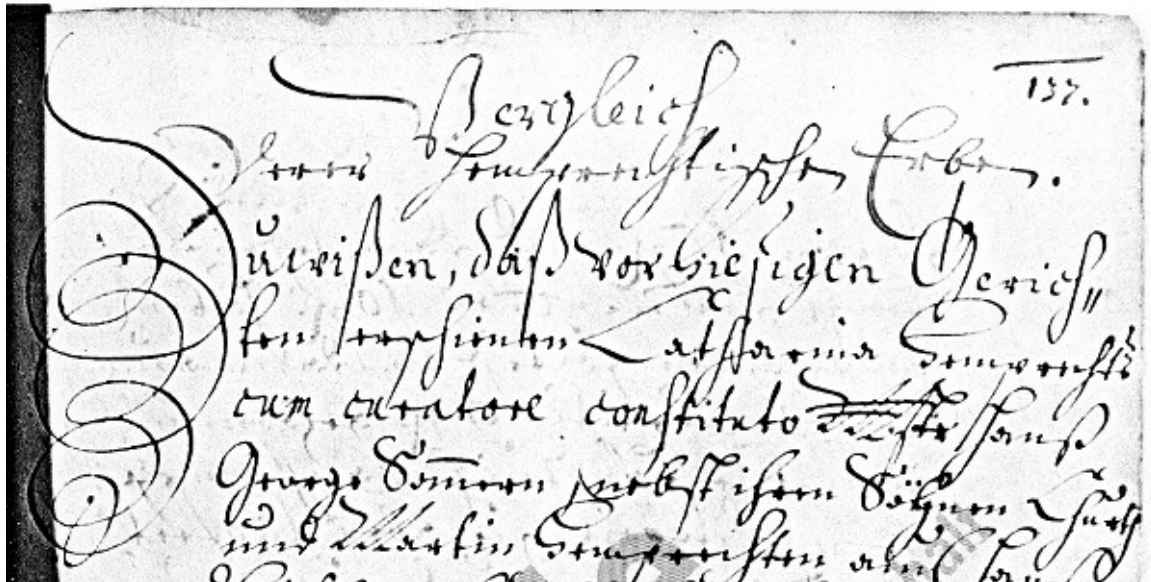 137.
Vergleich
Derer Hemprechtischen Erben.
Zu wißen, daß vor hiesigen Gerich„
ten erschienen Catharina Hemprechts
cum curatore constituto Mstr Hanß
George Sömern nebst ihren Söhnen
und Martin Hemprechten